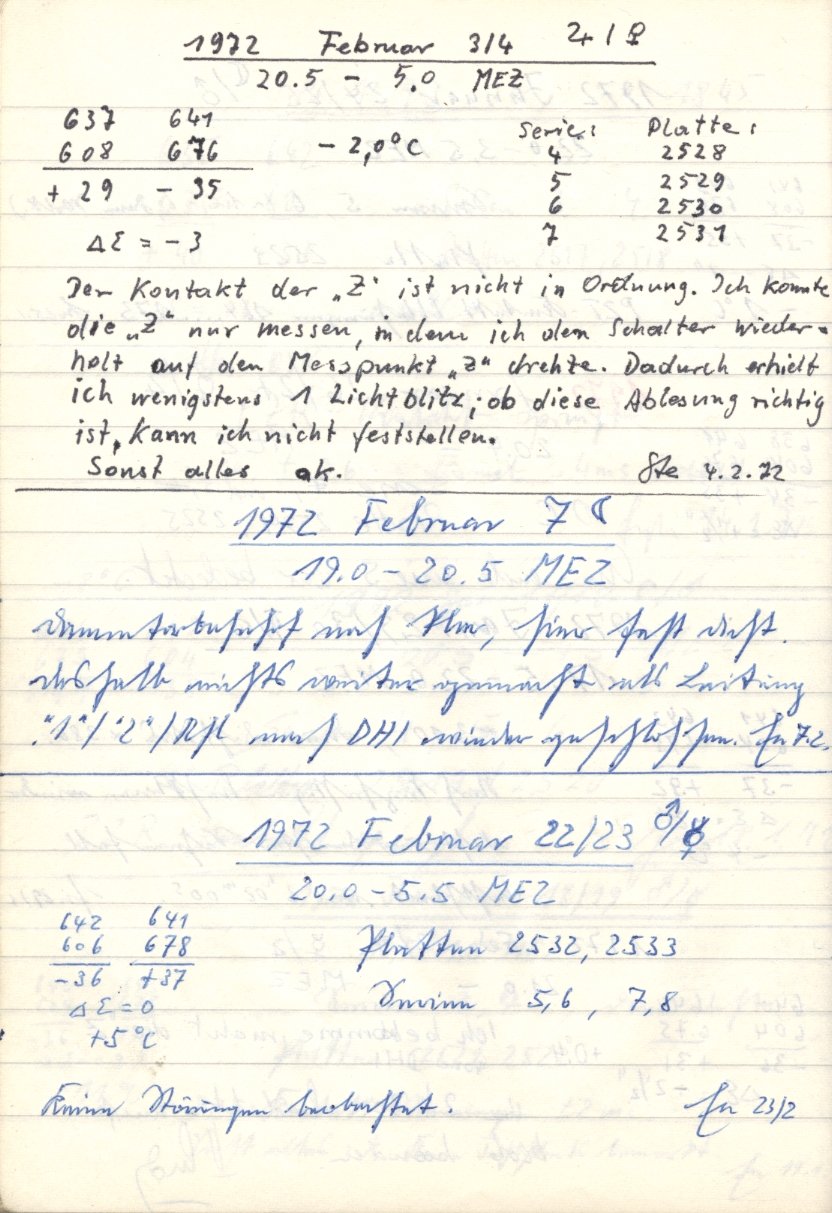 1972 Februar 3/4 ♃/♀
20.5 – 5.0 MEZ
637 641
608 676 – 2,0°C
+ 29 – 35
ΔΣ = – 3
Serie: Platte:
4 2528
5 2529
6 2530
7 2531
Der Kontakt der „Z" ist nicht in Ordnung. Ich konnte
die „Z" nur messen, in dem ich den Schalter wieder-
holt auf den Messpunkt „Z" drehte. Dadurch erhielt
ich wenigstens 1 Lichtblitz; ob diese Ablesung richtig
ist, kann ich nicht feststellen.
Sonst alles ok. Ste 4.2.72
1972 Februar 7 ☾
19.0 – 20.5 MEZ
Dammtorbahnhof noch klar, hier fast dicht.
deshalb nichts weiter gemacht als Leitung
"1"/"2"/ nach DHI wieder geschlossen. En 7.2.
1972 Februar 22/23 ♂/☿
20.0 – 5.5 MEZ
642 641
606 678
–36 +37
ΔΣ = 0
+5°C
Platten 2532, 2533
Serien 5,6 , 7,8
Keine Störungen beobachtet. En 23/2